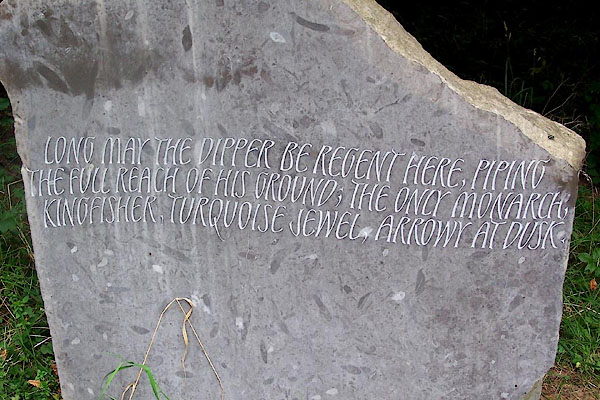 LONG MAY THE DIPPER BE REGENT HERE, PIPING
THE FULL REACH OF HIS GROUND; THE ONLY MONARCH,
KINGFISHER, TURQUOISE JEWEL, ARROWY AT DUSK.